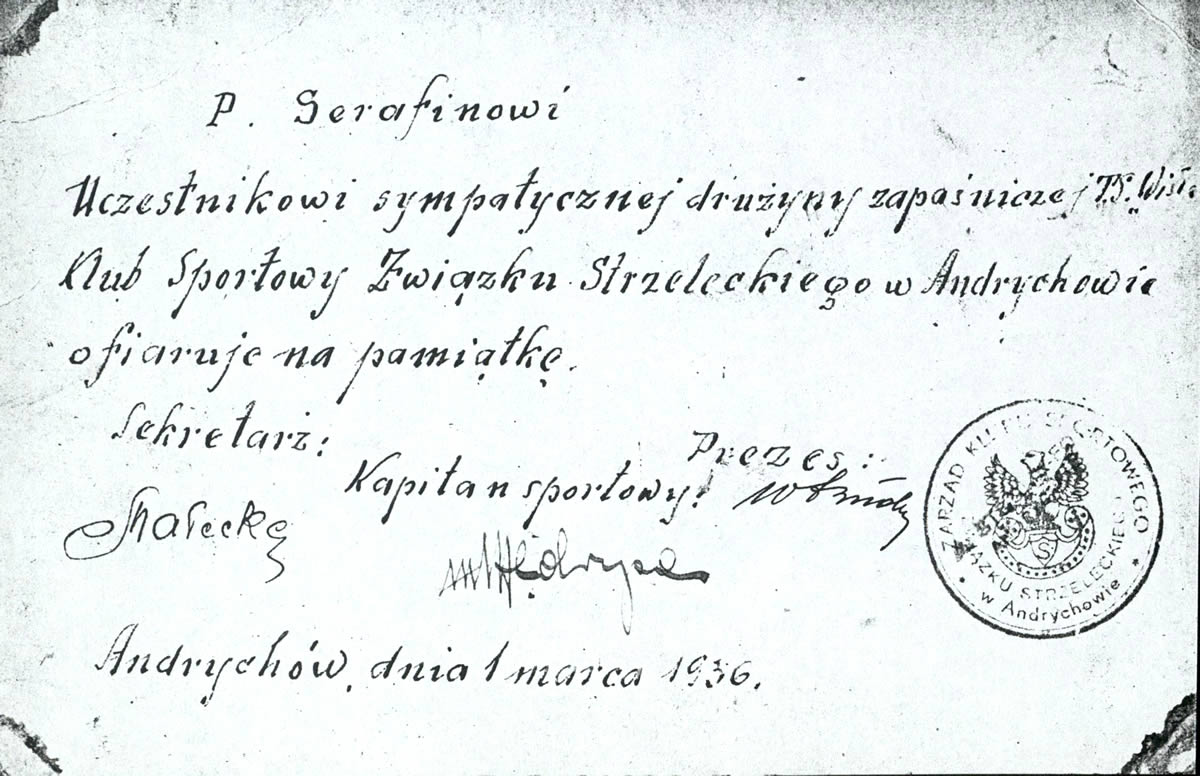 P. Serafinowi
Uczestnikowi sympatycznej drużyny zapaśniczej T.S. „Wisła
Klub Sportowy Związku Strzeleckiego w Andrychowie
ofiaruje na pamiątkę.
Sekretarz:
Prezes:
Kapitan sportowy:
Małecki
Andrychów, dnia 1 marca 1936.
ZARZĄD KLUBU SPORTOWEGO
ZWIĄZKU STRZELECKIEGO
w Andrychowie
S